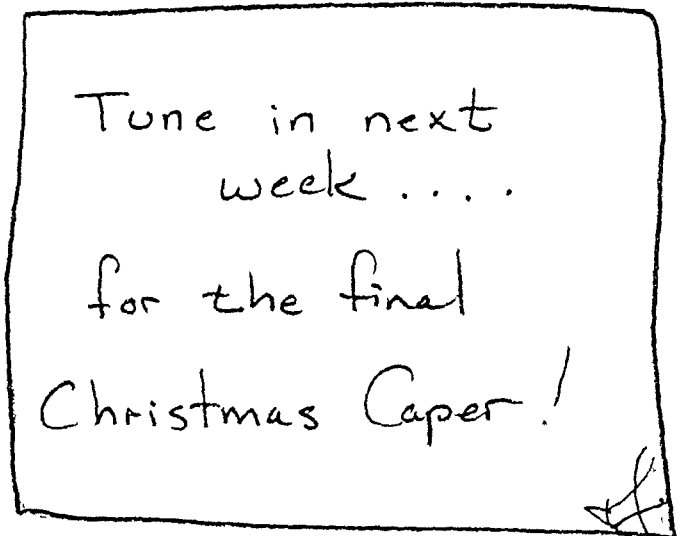 Tune in next
week ....
for the final
Christmas Caper!